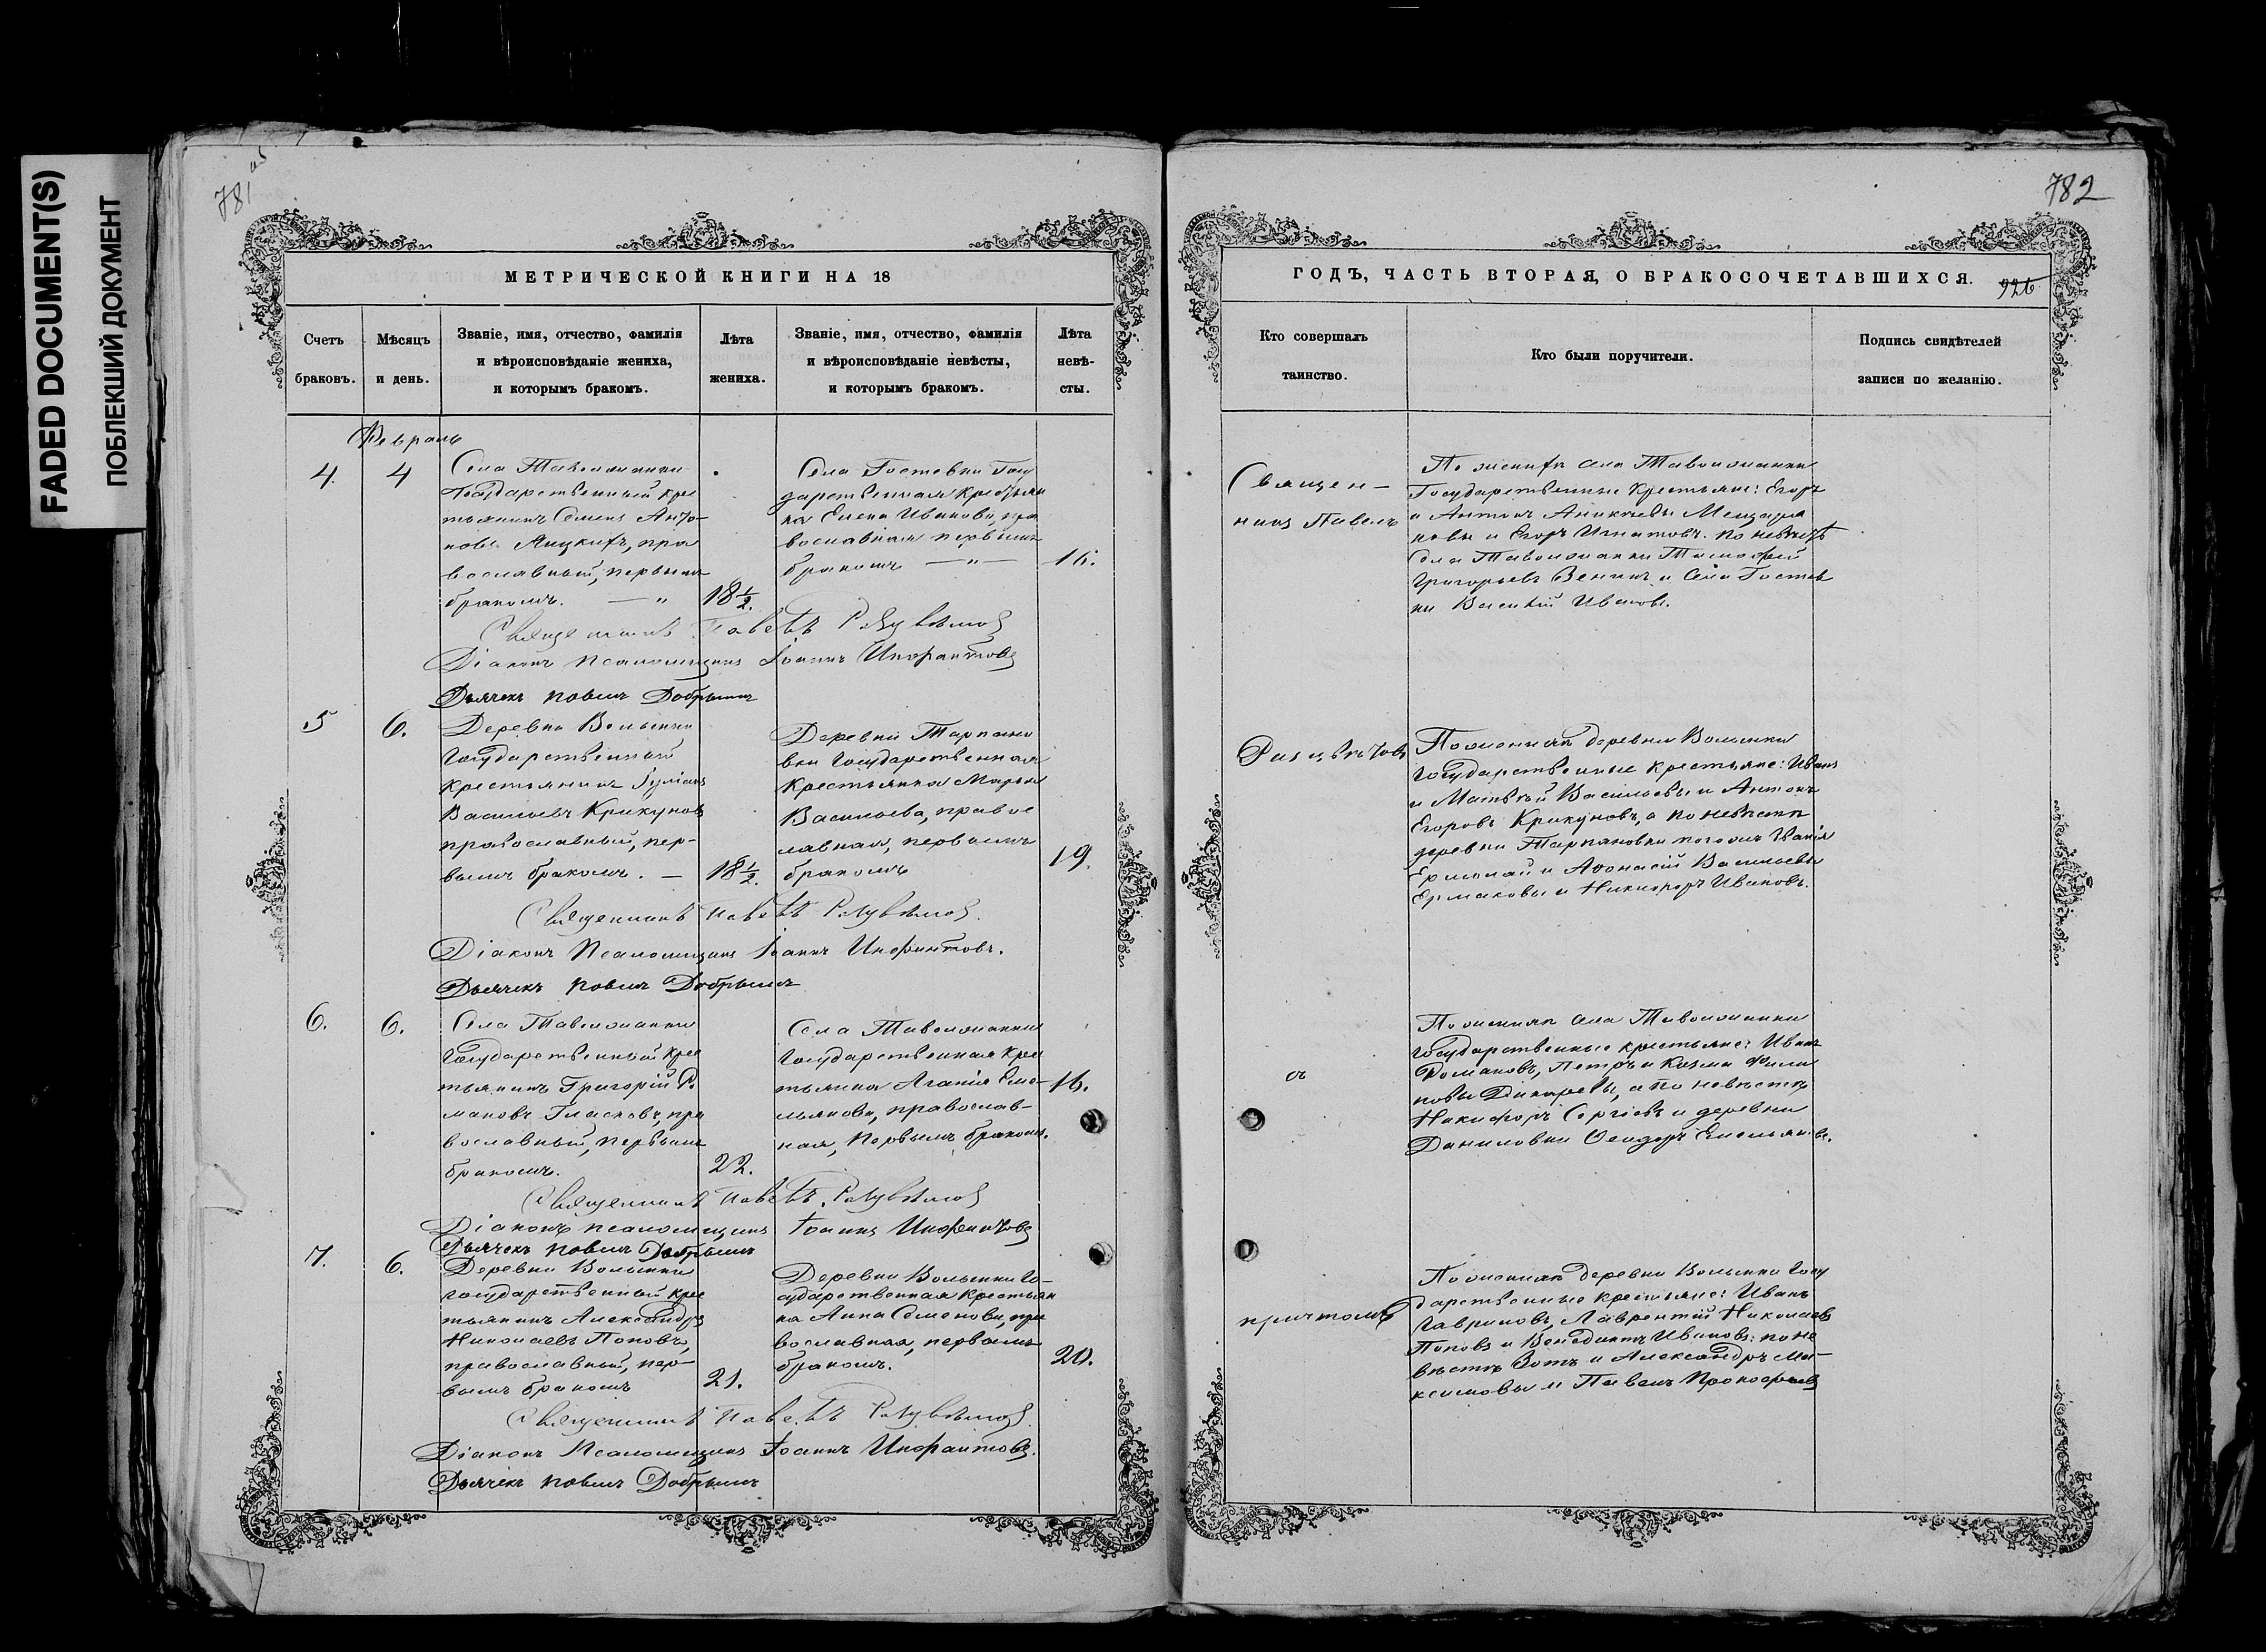 FADED DOCUMENT(S)
ПОБЛЕКШИЙ ДОКУМЕНТ
781 об
МЕТРИЧЕСКОЙ КНИГИ НА 18
Счетъ браковъ.
Мѣсяцъ и день.
Званіе, имя, отчество, фамилія
и вѣроисповѣданіе жениха,
и которымъ бракомъ.
Лѣта жениха.
Званіе, имя, отчество, фамилія
и вѣроисповѣданіе невѣсты,
и которымъ бракомъ.
Лѣта невѣ-
сты.
Февраль
4.
4
Села Таволожанки
Государственный крес
тьянинъ Семенъ Анто-
новъ, пра
вославный, первымъ
бракомъ. — "
18 1/2.
Села Гостевки Госу
дарственная крестьян
ка Елена Иванова, пра
вославная первымъ
бракомъ — " —
16.
Священникъ Павелъ
Діаконъ Псаломщикъ Іоаннъ
Дьячекъ Павелъ Добрынинъ
5
6.
Деревни Волынки
Государственный
крестьянинъ Іуліанъ
Васильевъ Крикуновъ
православный, пер-
вымъ бракомъ. —
18 1/2.
Деревни Тарпанов
вки Государственная
крестьянка Марья
Васильева, правос
лавная, первымъ
бракомъ
19.
Священникъ Павелъ
Діаконъ Псаломщикъ Іоаннъ
Дьячекъ Павелъ Добрынинъ
6.
6.
Села Таволожанки
Государственный крес
тьянинъ Григорій Ро
мановъ, пра
вославный, первымъ
бракомъ.
22.
Села Таволожанки
Государственная крес
тьянка Агапія Еме-
льянова, православ-
ная, первымъ бракомъ.
16.
Священникъ Павелъ
Діаконъ Псаломщикъ Іоаннъ
Дьячекъ Павелъ Добрынинъ
7.
6.
Деревни Волынки
государственный крес
тьянинъ Александръ
Николаевъ Поповъ,
православный, пер-
вымъ бракомъ
21.
Деревни Волынки Го-
сударственная крестьян
ка Анна Семенова, пра
вославная, первымъ
бракомъ.
20.
Священникъ Павелъ
Діаконъ Псаломщикъ Іоаннъ
Дьячекъ Павелъ Добрынинъ
782
ГОДЪ, ЧАСТЬ ВТОРАЯ, О БРАКОСОЧЕТАВШИХСЯ.
926
Кто совершалъ
таинство.
Кто были поручители.
Подпись свидѣтелей
записи по желанію.
Священ-
никъ Павелъ
По женихѣ села Таволожанки
Государственные крестьяне: Егоръ
и Антонъ Аникѣевы
и Егоръ Игнатовъ. по невѣстѣ
Села Таволожанки Тимофей
Григорьевъ и села Гостев
ки Василій Ивановъ.
По женихѣ деревни Волынки
государственные крестьяне: Иванъ
и Матвѣй Васильевы и Антонъ
Егоровъ Крикуновъ, а по невѣстѣ
деревни Тарпановки
Ермолай и Афонасій Васильевы
Ермаковы и Никифоръ Ивановъ.
съ
По женихѣ села Таволожанки
государственные крестьяне: Иванъ
Романовъ, Петръ и Козма Фили
повы, а по невѣстѣ
Никифоръ Сергіевъ и деревни
Даниловки Ѳеодоръ Емельяновъ.
причтомъ
По женихѣ деревни Волынки Госу
дарственные крестьяне: Иванъ
Гавриловъ, Лаврентій Николаевъ
Поповъ и Венедиктъ Ивановъ: по не
вѣстѣ Зотъ и Александръ Ма-
ксимовы и Павелъ Прокофьевъ